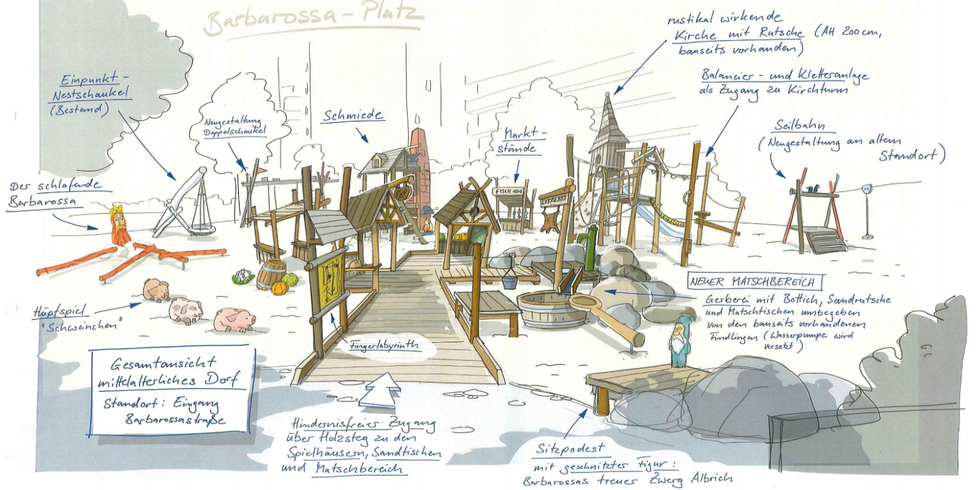 Barbarossa-Platz
rustikal wirkende
Kirche mit Rutsche (AH 200cm,
bauseits vorhanden)
Einpunkt-
Nestschaukel
(Bestand)
Neugestaltung
Doppelschaukel
Schmiede
Markt-
stände
Balancier- und Kletteranlage
als Zugang zu Kirchturm
Seilbahn
(Neugestaltung an altem
Standort)
Der schlafende
Barbarossa
Hüpfspiel
"Schweinchen"
Fingerlabyrinth
NEUER MATSCHBEREICH
Gerberei mit Bottich, Sandrutsche
und Matschtischen umgeben
von den bauseits vorhandenen
Findlingen (Wasserpumpe wird
versetzt)
Gesamtansicht
mittelalterliches Dorf
Standort: Eingang
Barbarossastraße
Hindernisfreier Zugang
über Holzsteg zu den
Spielhäusern, Sandtischen
und Matschbereich
Sitzpodest
mit geschnitzter Figur:
Barbarossas treuer Zwerg Albrich